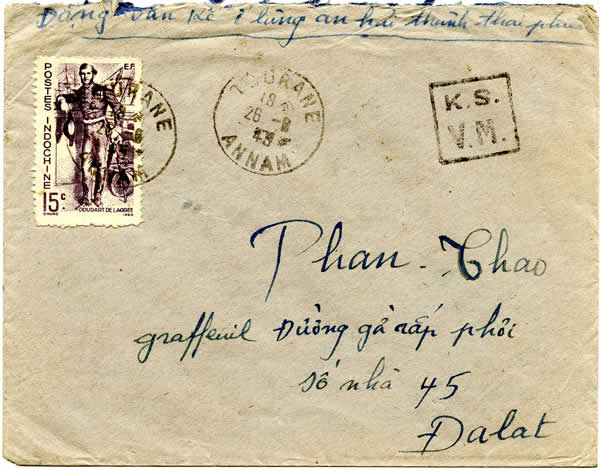 Đặng-văn Kê 1 lùng an hải thành-thai phu
POSTES INDOCHINE
E.F.
15c
DOUDART DE LAGRÉE
TOURANE
18
26 -8
45
ANNAM
K.S.
V.M.
Phan-Thao
graffeuil Đường gà rấp phôi
số nhà 45
Dalat